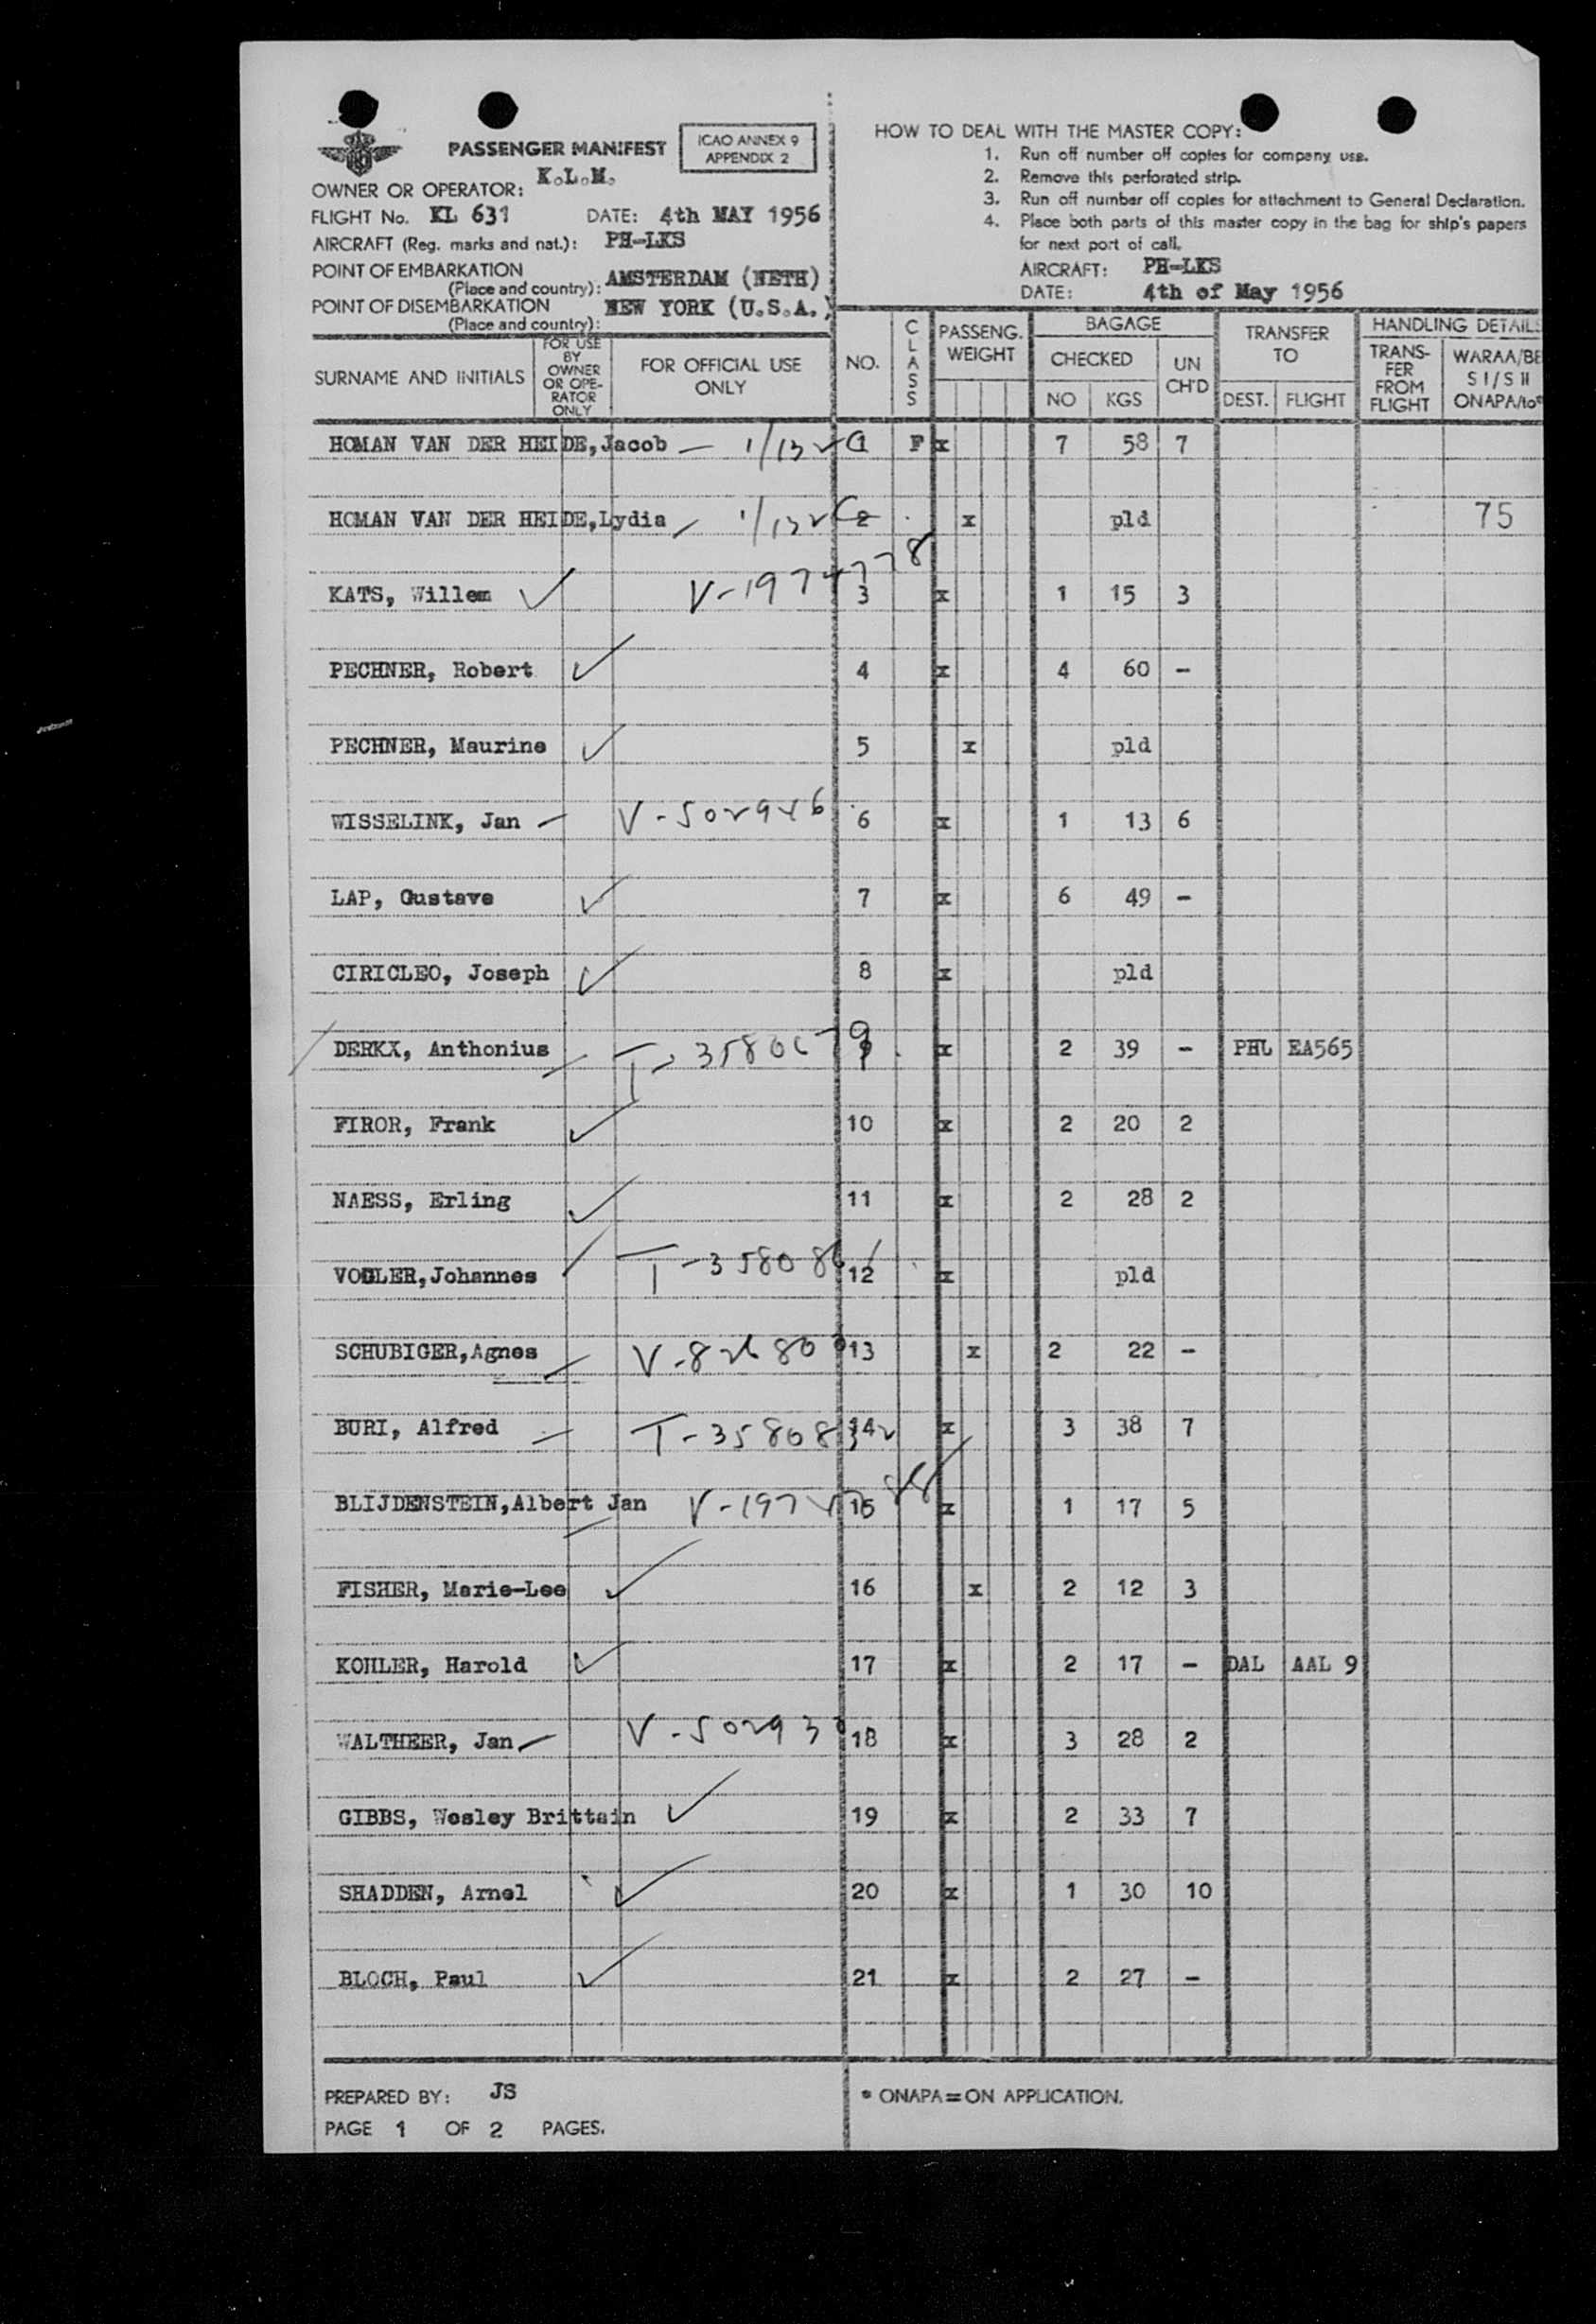 PASSENGER MANIFEST
ICAO ANNEX 9
APPENDIX 2
OWNER OR OPERATOR: K.L.M.
FLIGHT No. KL 631 DATE: 4th MAY 1956
AIRCRAFT (Reg. marks and nat.): PH-LKS
POINT OF EMBARKATION
(Place and country): AMSTERDAM (NETH)
POINT OF DISEMBARKATION
(Place and country): NEW YORK (U.S.A.)
HOW TO DEAL WITH THE MASTER COPY:
1. Run off number off copies for company use.
2. Remove this perforated strip.
3. Run off number off copies for attachment to General Declaration.
4. Place both parts of this master copy in the bag for ship's papers
for next port of call.
AIRCRAFT: PH-LKS
DATE: 4th of May 1956
SURNAME AND INITIALS
FOR USE
BY
OWNER
OR OPE-
RATOR
ONLY
FOR OFFICIAL USE
ONLY
NO.
CLASS
PASSENG.
WEIGHT
BAGAGE
CHECKED
NO KGS
UN
CH'D
TRANSFER
TO
DEST. FLIGHT
HANDLING DETAILS
TRANS-
FER
FROM
FLIGHT
WARAA/BE
S I/S II
ONAPA/to*
HOMAN VAN DER HEIDE, Jacob F x 7 58 7
HOMAN VAN DER HEIDE, Lydia 2 x pld 75
KATS, Willem V-1974778 3 x 1 15 3
PECHNER, Robert 4 x 4 60 -
PECHNER, Maurine 5 x pld
WISSELINK, Jan V-502946 6 x 1 13 6
LAP, Gustave 7 x 6 49 -
CIRICLEO, Joseph 8 x pld
DERKX, Anthonius T-3580679 9 x 2 39 - PHL EA565
FIROR, Frank 10 x 2 20 2
NAESS, Erling 11 x 2 28 2
VOGLER, Johannes 12 x pld
SCHUBIGER, Agnes 13 x 2 22 -
BURI, Alfred 14 x 3 38 7
BLIJDENSTEIN, Albert Jan 15 x 1 17 5
FISHER, Marie-Lee 16 x 2 12 3
KOHLER, Harold 17 x 2 17 - DAL AAL 9
WALTHEER, Jan 18 x 3 28 2
GIBBS, Wesley Brittain 19 x 2 33 7
SHADDEN, Arnel 20 x 1 30 10
BLOCH, Paul 21 x 2 27 -
PREPARED BY: JS
PAGE 1 OF 2 PAGES.
* ONAPA=ON APPLICATION.